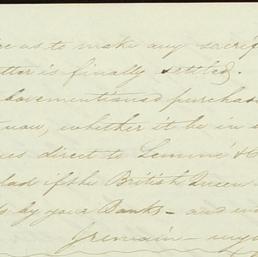 us to make any sacrif
tter is finally settled.
bovementioned purchas
now, whether it be in s
es direct to Lemmé & C
lad if the British Queen
by your Banks - and
I remain -